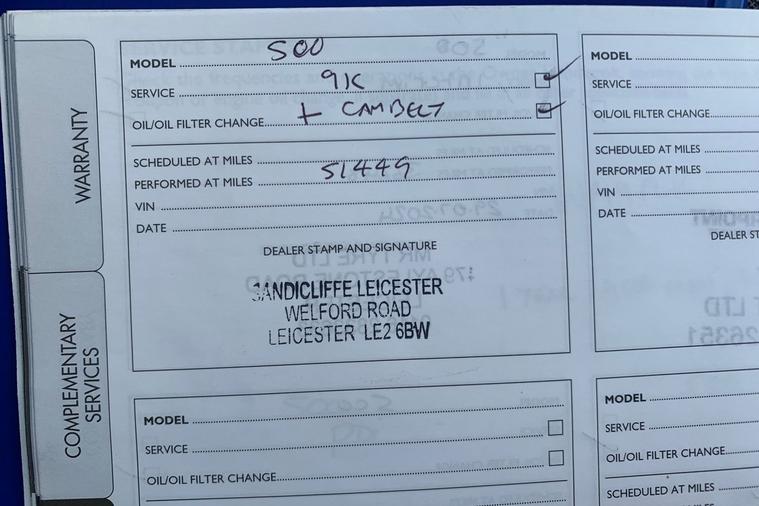 WARRANTY
COMPLEMENTARY
SERVICES
MODEL 500
SERVICE 9K
OIL/OIL FILTER CHANGE + CAMBELT
SCHEDULED AT MILES
PERFORMED AT MILES 51449
VIN
DATE
DEALER STAMP AND SIGNATURE
SANDICLIFFE LEICESTER
WELFORD ROAD
LEICESTER LE2 6BW
MODEL
SERVICE
OIL/OIL FILTER CHANGE
SCHEDULED AT MILES
PERFORMED AT MILES
VIN
DATE
DEALER ST
MODEL
SERVICE
OIL/OIL FILTER CHANGE
MODEL
SERVICE
OIL/OIL FILTER CHANGE
SCHEDULED AT MILES